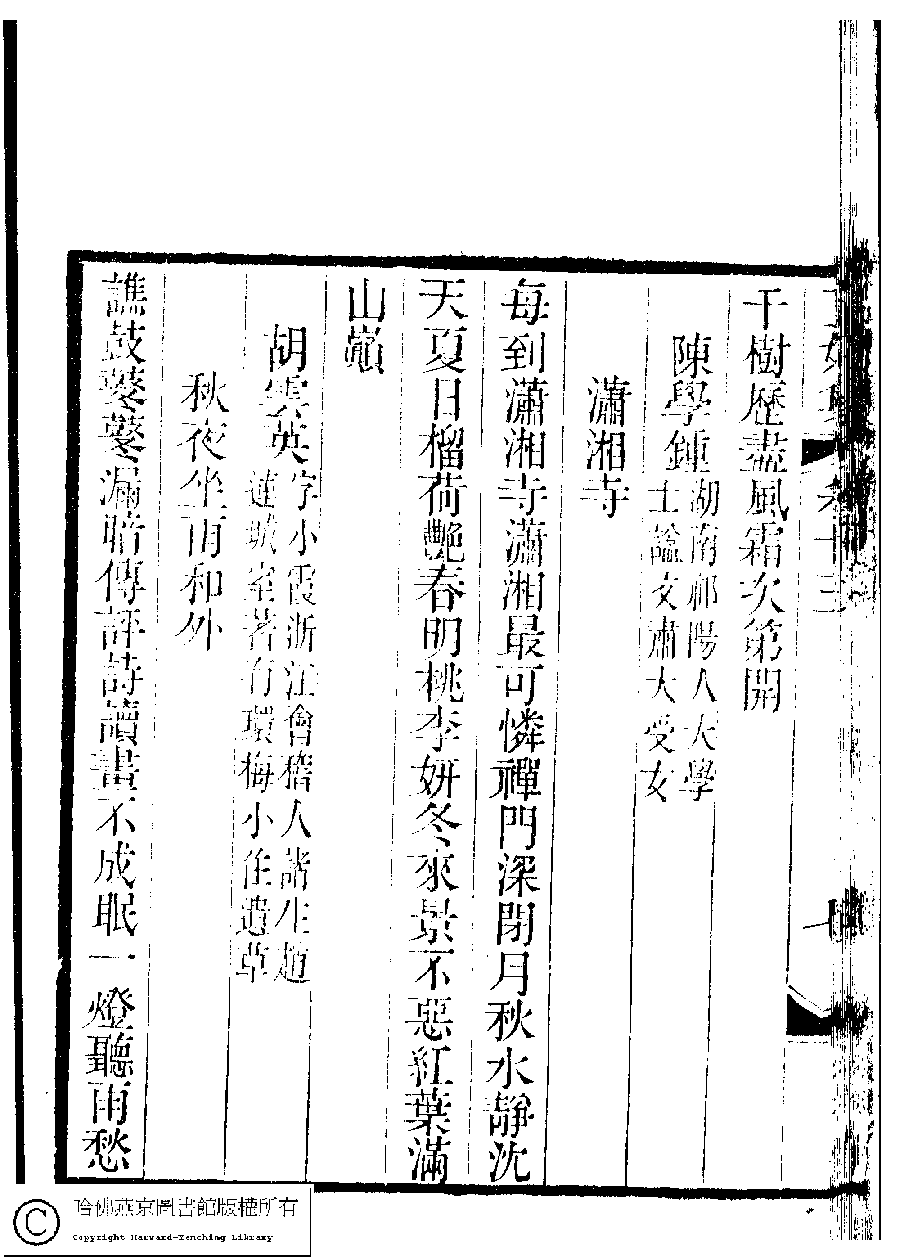 千樹歷盡風霜次第開
陳學鍾湖南祁陽人大學
士諡文肅大受女
瀟湘寺
每到瀟湘寺瀟湘最可憐禪門深閉月秋水靜沈
天夏日榴荷艷春明桃李妍冬來景不惡紅葉滿
山巔
胡雲英字小霞浙江會稽人諸生趙
蓮城室著有環梅小住遺草
秋夜坐雨和外
譙鼓鼕鼕漏暗傳評詩讀畫不成眠一燈聽雨愁
哈佛燕京圖書館版權所有
Copyright Harvard-Yenching Library